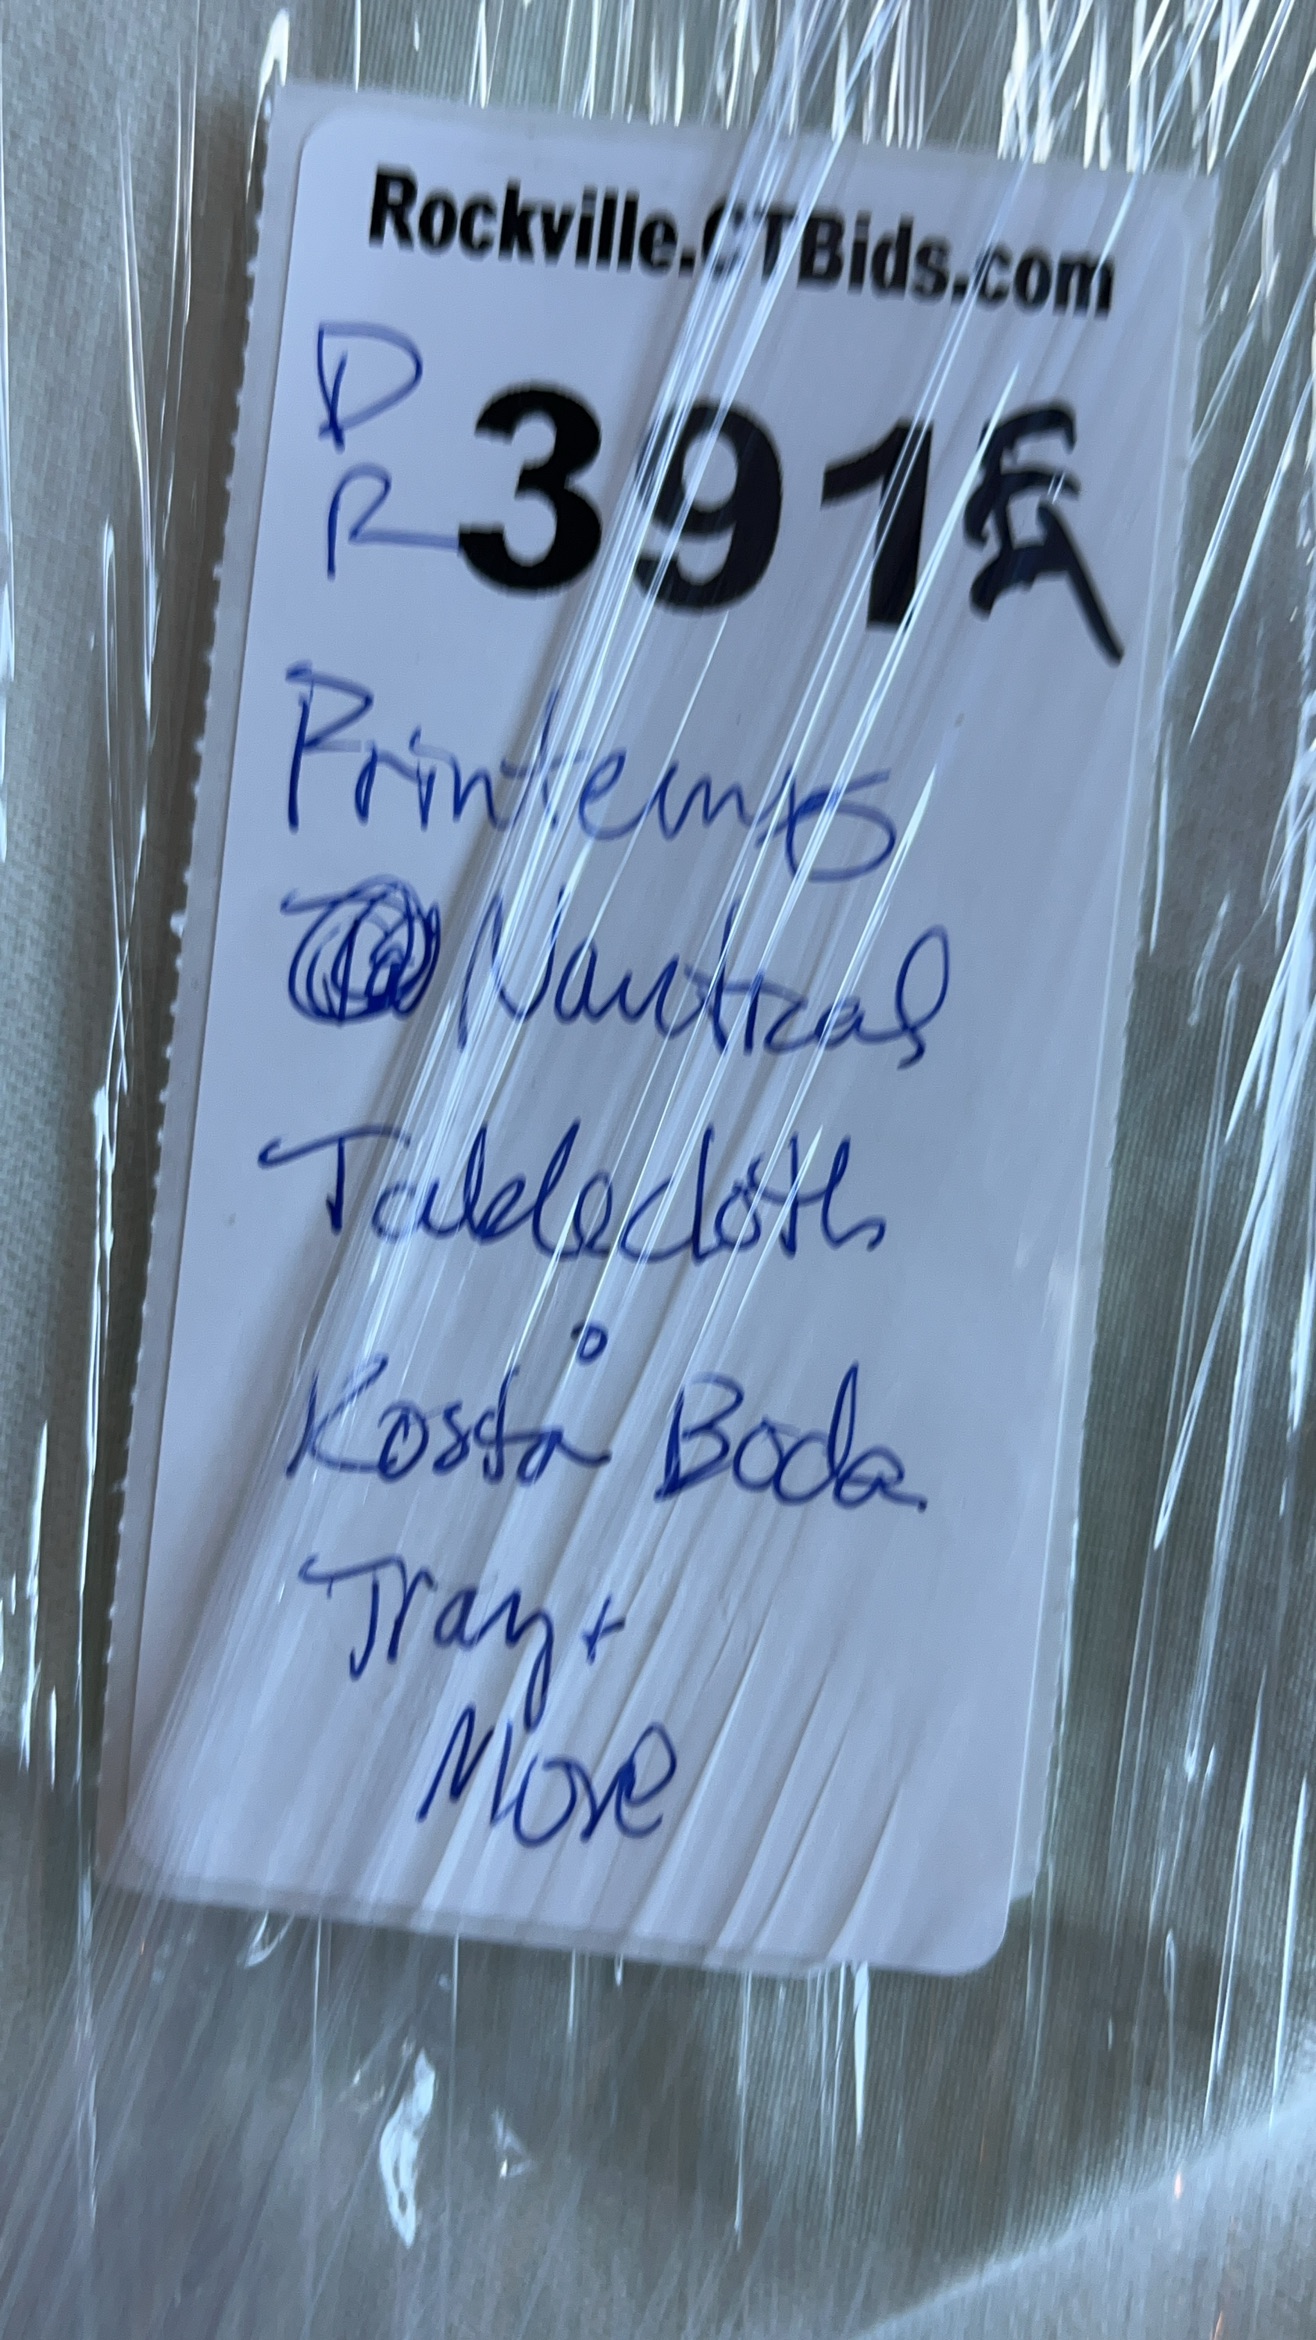 Rockville.CTBids.com
D
R
391
Printemps
Nautical
Tablecloth
Kosta Boda
Tray +
More